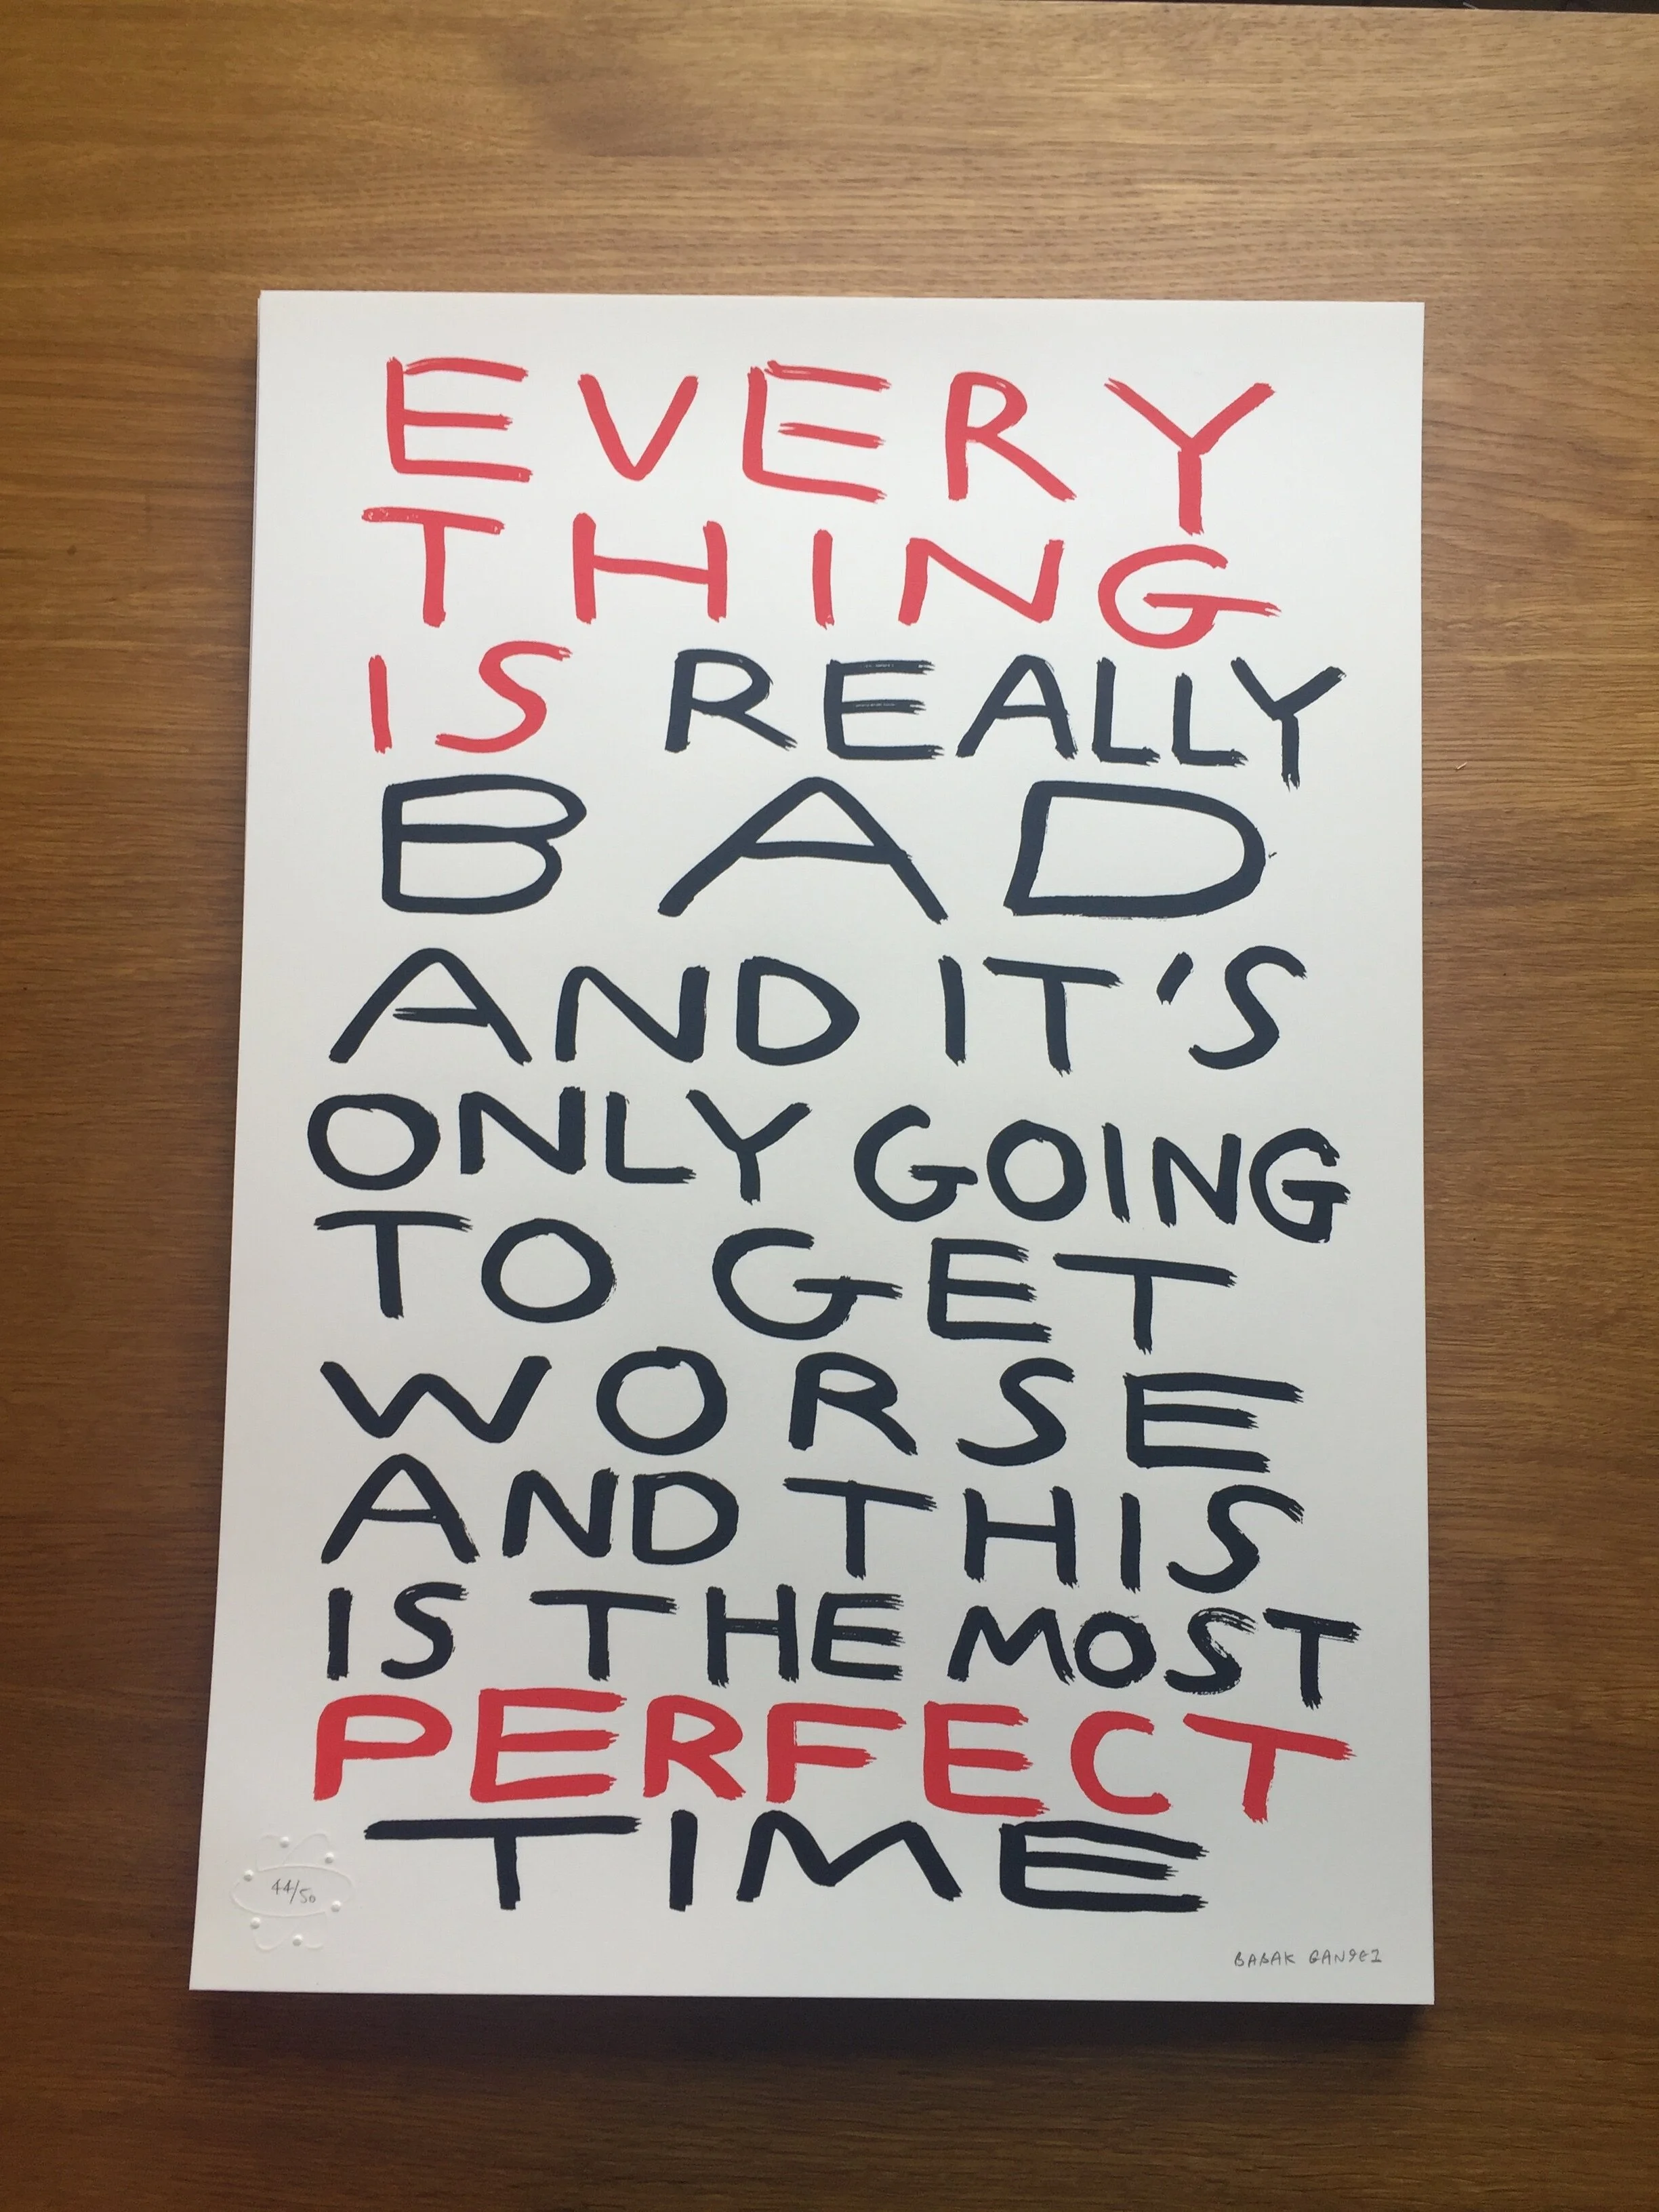 EVERY
THING
IS REALLY
BAD
AND IT'S
ONLY GOING
TO GET
WORSE
AND THIS
IS THE MOST
PERFECT
TIME
44/50
BABAK GANJEI